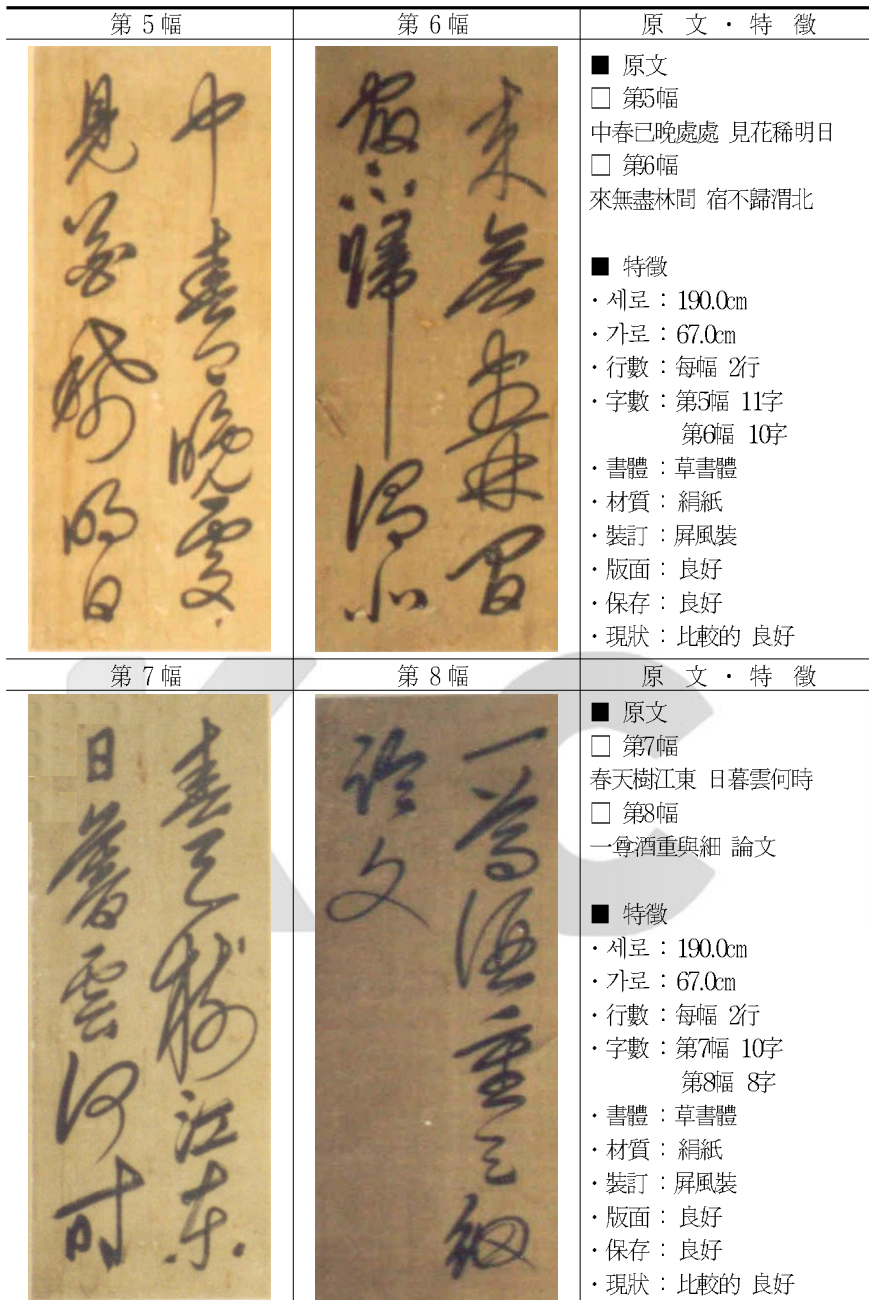 第 5幅
第 6幅
原 文 · 特 徵
中春已晚處々
見花稀明日
來無盡林間
宿不歸渭北
■ 原文
□ 第5幅
中春已晩處處 見花稀明日
□ 第6幅
來無盡林間 宿不歸渭北
■ 特徵
· 세로 : 190.0㎝
· 가로 : 67.0㎝
· 行數 : 每幅 2行
· 字數 : 第5幅 11字
第6幅 10字
· 書體 : 草書體
· 材質 : 絹紙
· 裝訂 : 屛風裝
· 版面 : 良好
· 保存 : 良好
· 現狀 : 比較的 良好
第 7幅
第 8幅
原 文 · 特 徵
春天樹江東
日暮雲何時
一尊酒重與細
論文
■ 原文
□ 第7幅
春天樹江東 日暮雲何時
□ 第8幅
一尊酒重與細 論文
■ 特徵
· 세로 : 190.0㎝
· 가로 : 67.0㎝
· 行數 : 每幅 2行
· 字數 : 第7幅 10字
第8幅 8字
· 書體 : 草書體
· 材質 : 絹紙
· 裝訂 : 屛風裝
· 版面 : 良好
· 保存 : 良好
· 現狀 : 比較的 良好